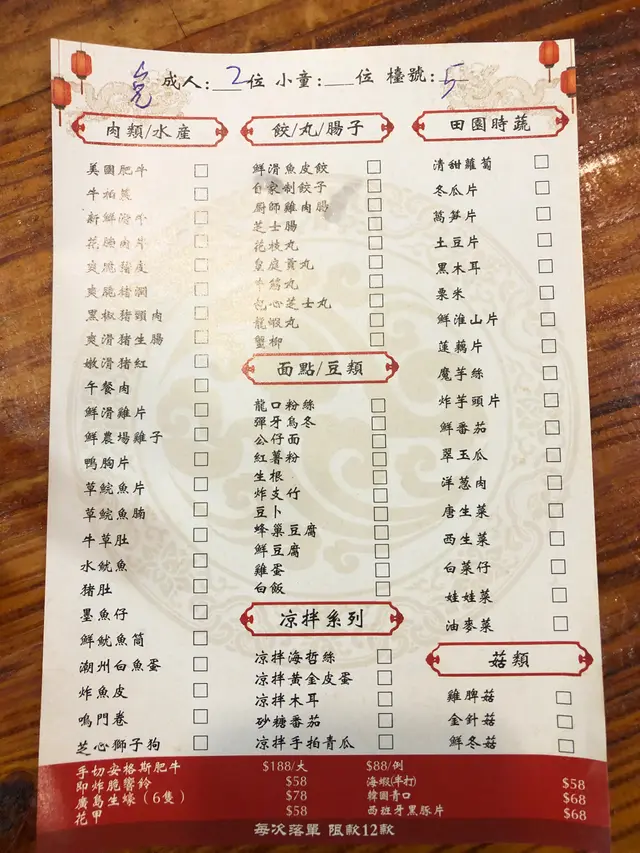 成人:2位 小童:__位 檯號:5
肉類/水產
美國肥牛
牛柏葉
新鮮滑牛
花腩肉片
爽脆豬皮
爽脆豬潤
黑椒豬頸肉
爽滑豬生腸
嫩滑豬紅
午餐肉
鮮滑雞片
鮮農場雞子
鴨胸片
草鯇魚片
草鯇魚腩
牛草肚
水魷魚
豬肚
墨魚仔
鮮魷魚筒
潮州白魚蛋
炸魚皮
鳴門卷
芝心獅子狗
餃/丸/腸子
鮮滑魚皮餃
自家制餃子
廚師雞肉腸
芝士腸
花枝丸
皇庭貢丸
牛筋丸
包心芝士丸
龍蝦丸
蟹柳
面點/豆類
龍口粉絲
彈牙烏冬
公仔面
紅薯粉
生根
炸支竹
豆卜
蜂巢豆腐
鮮豆腐
雞蛋
白飯
凉拌系列
凉拌海哲絲
凉拌黃金皮蛋
凉拌木耳
砂糖番茄
凉拌手拍青瓜
田園時蔬
清甜蘿蔔
冬瓜片
萵笋片
土豆片
黑木耳
粟米
鮮淮山片
蓮藕片
魔芋絲
炸芋頭片
鮮番茄
翠玉瓜
洋葱肉
唐生菜
西生菜
白菜仔
娃娃菜
油麥菜
菇類
雞脾菇
金針菇
鮮冬菇
手切安格斯肥牛 $188/大 $88/例
即炸脆響鈴 $58
廣島生蠔（6隻） $78
花甲 $58
海蝦(半打) $58
韓國青口 $68
西班牙黑豚片 $68
每次落單 限款12款